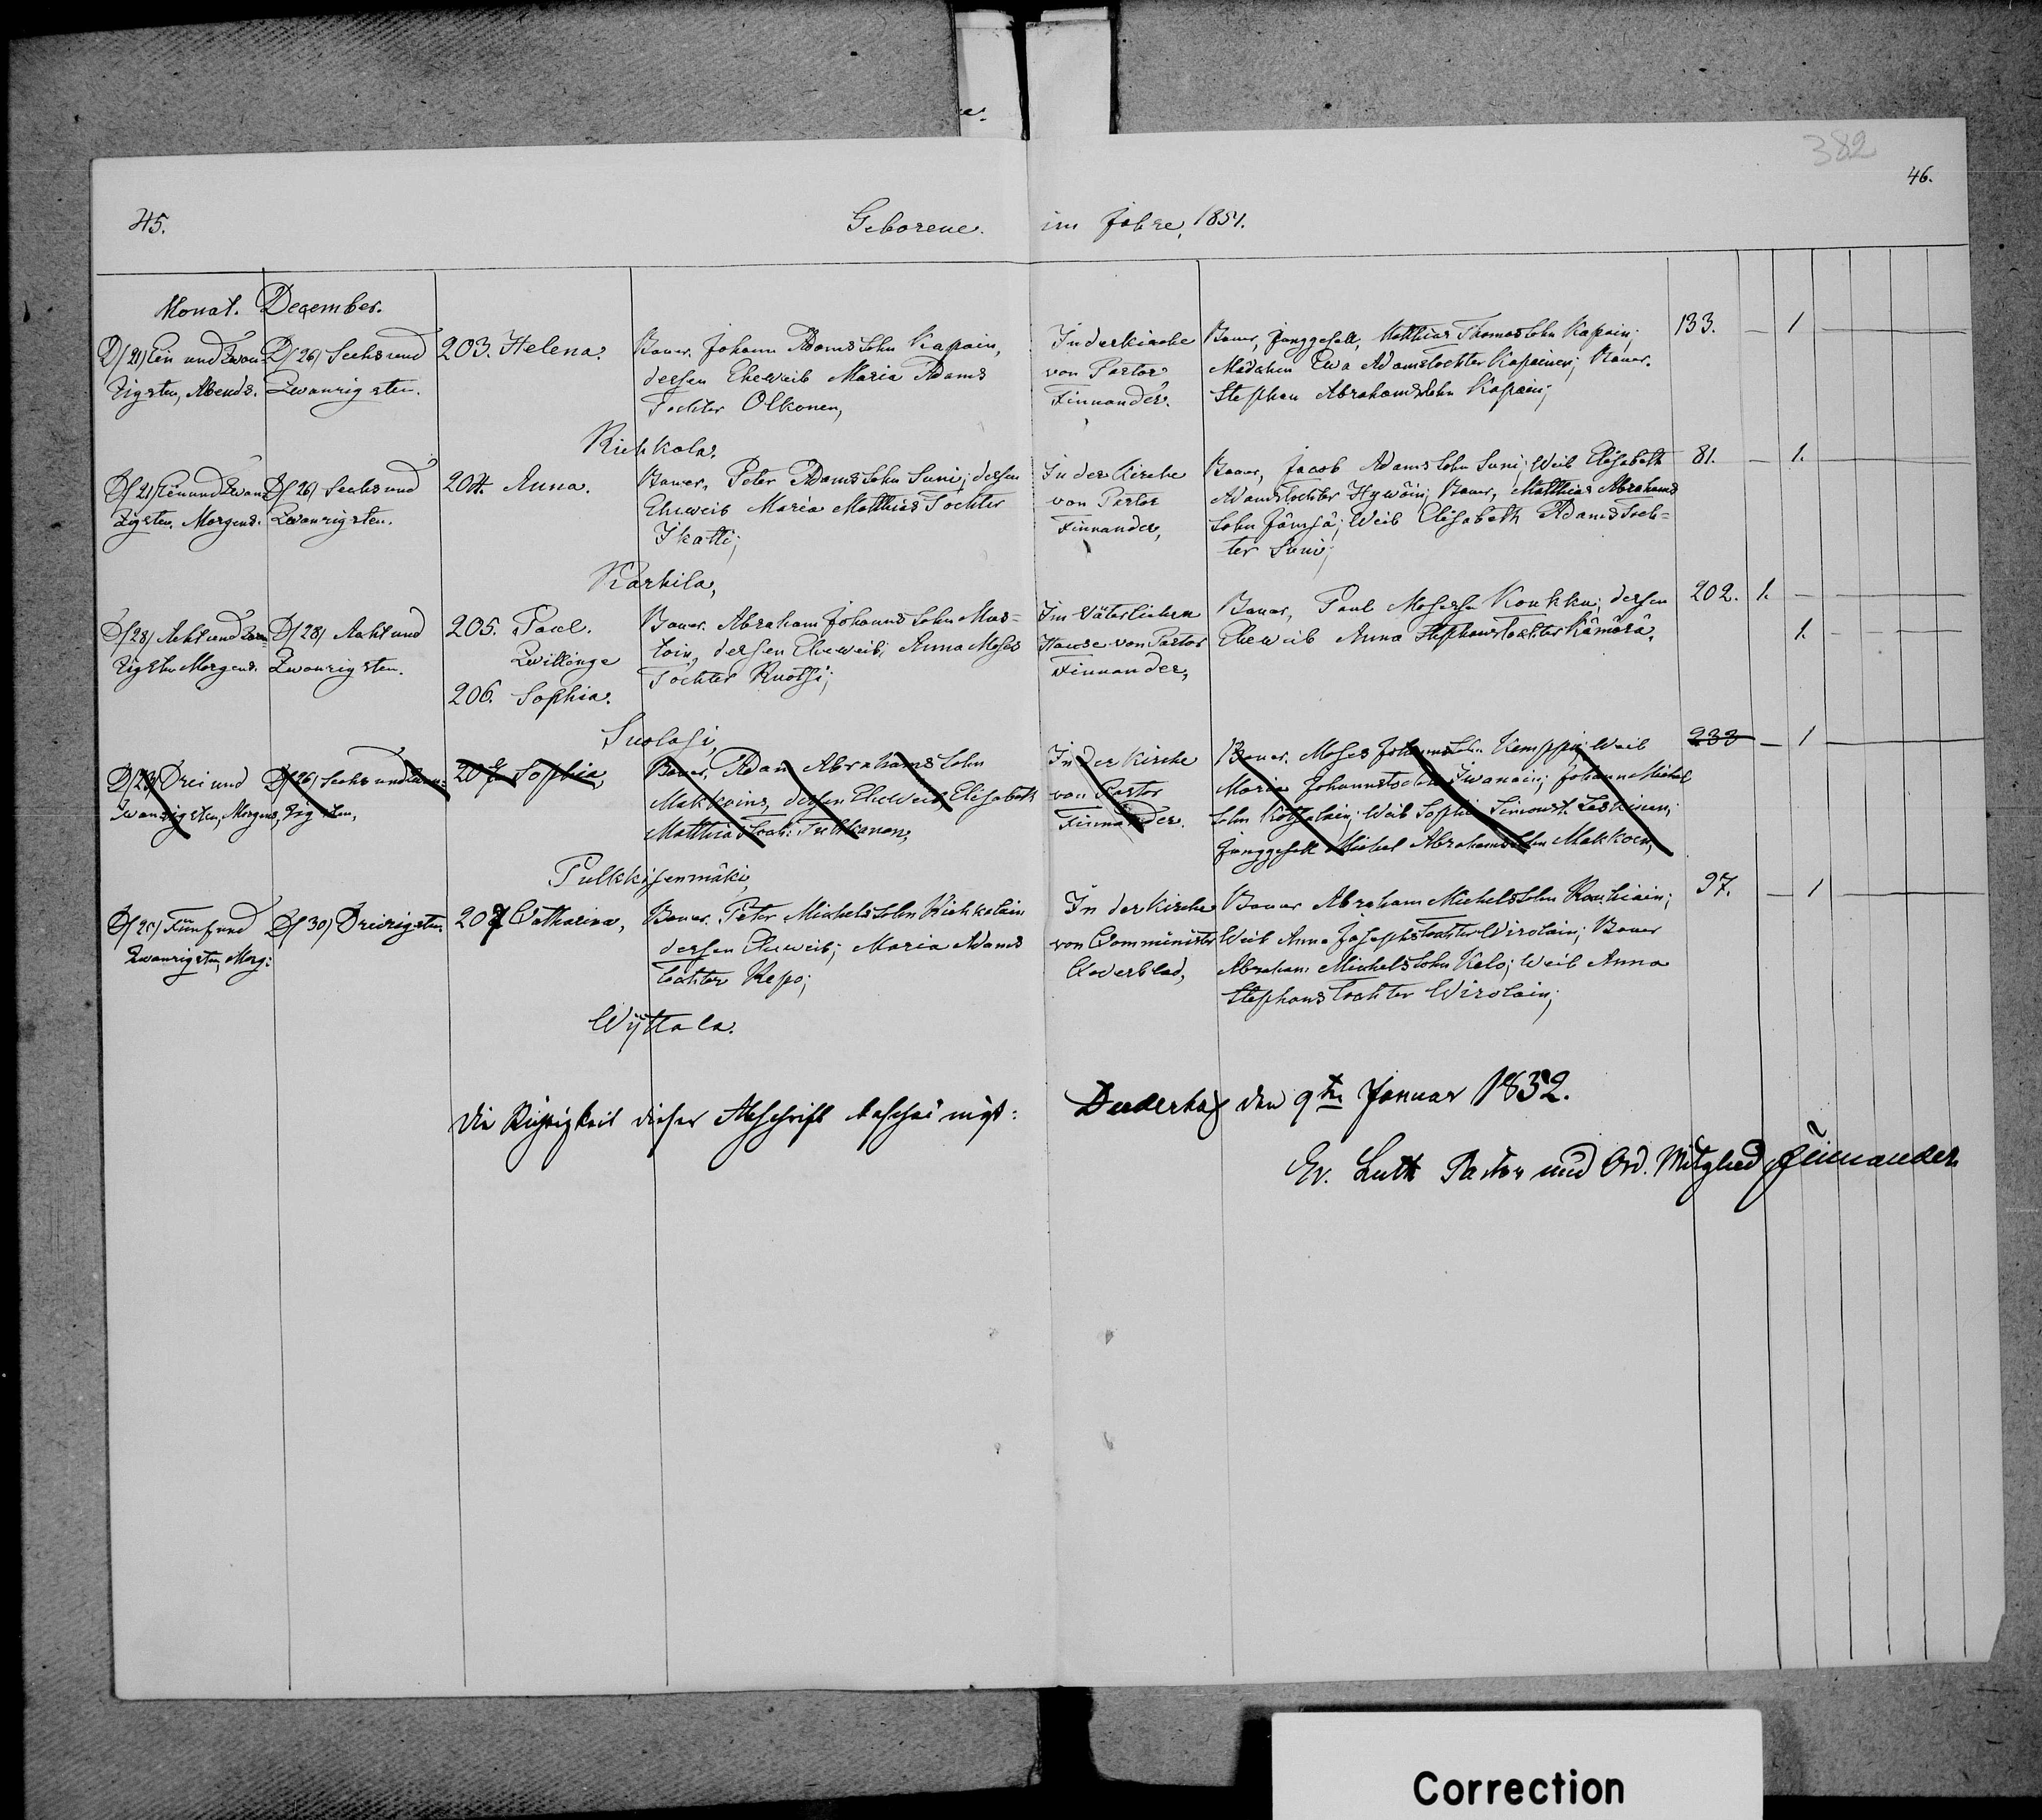 382
45.
46.
Geborene. im Jahre, 1851.
Monat. December.
D/21/ Ein und Zwan-
zigsten, Abends.
D/26/ Sechs und
Zwanzigsten.
203. Helena.
Bauer. Johann Adams Sohn Kapain,
dessen Eheweib Maria Adams
Tochter Olkonen,
In der Kirche
von Pastor
Finnander.
Bauer, Junggesell, Matthias Thomas Sohn Kapain;
Mädchen Ewa Adamstochter Kapainen; Bauer.
Stephan Abrahams Sohn Kapain;
133. — 1 —
Rich kola,
D/21/ Ein und Zwan-
zigsten. Morgens.
D/26/ Sechs und
Zwanzigsten.
204. Anna.
Bauer. Peter Adams Sohn Suni; dessen
Eheweib Maria Matthias Tochter
Ikatti;
In der Kirche
von Pastor
Finnander,
Bauer, Jacob Adams Sohn Suni; Weib Elisabeth
Adamstochter Hywöin; Bauer, Matthias Abrahams
Sohn Jämsä; Weib Elisabeth Adams Toch-
ter Suni;
81. — 1. —
Karhila,
D/28/ Acht und Zwan-
zigsten Morgens.
D/28/ Acht und
Zwanzigsten.
205. Paul.
Zwillinge
206. Sophia.
Bauer. Abraham Johanns Sohn Mus-
toin, dessen Eheweib, Anna Moses
Tochter Ruotsi;
Im Väterlichen
Hause von Pastor
Finnander,
Bauer, Paul Moses Koukku; dessen
Eheweib Anna Stephanstochter Kämärä,
202. 1. —
1. —
Suolasi,
D/23/ Drei und
Zwanzigsten, Morgens,
D/26/ Sechs und Zwan-
zigsten,
207 Sophia,
Bauer, Adam Abrahams Sohn
Makkoins, dessen Eheweib Elisabeth
Matthias Toch: Tuhkanen,
In der Kirche
von Pastor
Finnander.
Bauer. Moses Johanns Sohn Kemppi; Weib
Maria Johannstochter Iwanain; Johann Michel
Sohn Kotsalain; Weib Sophia Simonst. Leskinen;
Junggesell Michel Abrahams Sohn Makkoin,
233 — 1 —
Pulkkisenmäki,
D/25/ Fünf und
Zwanzigsten, Morg:
D/30/ Dreizigsten.
207 Catharina,
Bauer. Peter Michels Sohn Kichkolain
dessen Eheweib; Maria Adams
Tochter Repo;
In der Kirche
von Comminister
Cederblad,
Bauer Abraham Michels Sohn Rautiain;
Weib Anna Josephstochter Wirolain; Bauer
Abraham Michels Sohn Kelo; Weib Anna
Stephans Tochter Wirolain;
97. — 1 —
Wijttala.
Die Richtigkeit dieser Abschrift bescheinigt: Duderhof den 9ten Januar 1852.
Ev. Luth Pastor und Ord. Mitglied Finnander
Correction